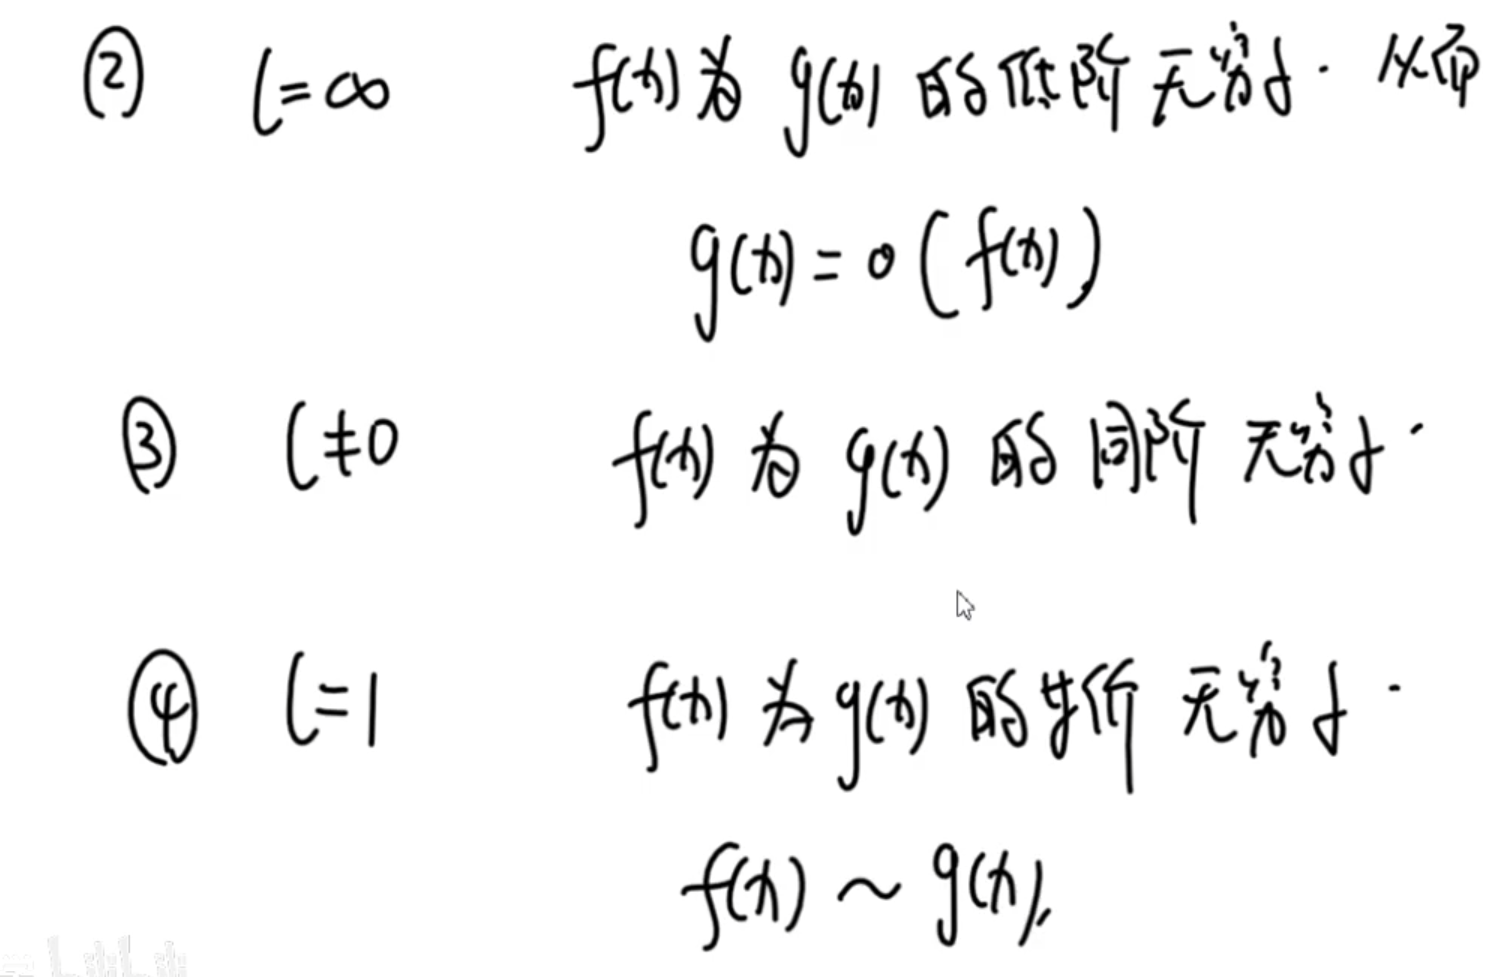 ② l=∞ f(x)为g(x)的低阶无穷小. 记
g(x)=o(f(x))
③ l≠0 f(x)为g(x)的同阶无穷小.
④ l=1 f(x)为g(x)的等价无穷小.
f(x)~g(x).